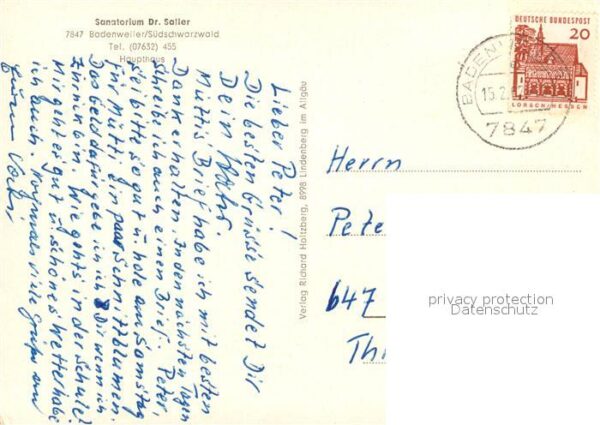 Sanatorium Dr. Saller
7847 Badenweiler/Südschwarzwald
Tel. (07632) 455
Haupthaus
Lieber Peter!
Die besten Grüsse sendet Dir
Dein
Muttis Brief habe ich mit besten
Dank erhalten. In den nächsten Tagen
schreib ich auch einen Brief. Peter,
sei bitte so gut u. hole am Samstag
für Mutti ein paar Schnittblumen.
Das Geld dafür gebe ich Dir wenn ich
zurück bin. Wie gehts in der Schule?
Mir geht es gut u. schönes Wetter habe
ich auch. Nochmals viele Grüße an
Euren
Verlag Richard Holtzberg, 8998 Lindenberg im Allgäu
DEUTSCHE BUNDESPOST
20
LORSCH/HESSEN
BADENW
15.2.
7847
Herrn
Pete
647
Th
privacy protection
Datenschutz